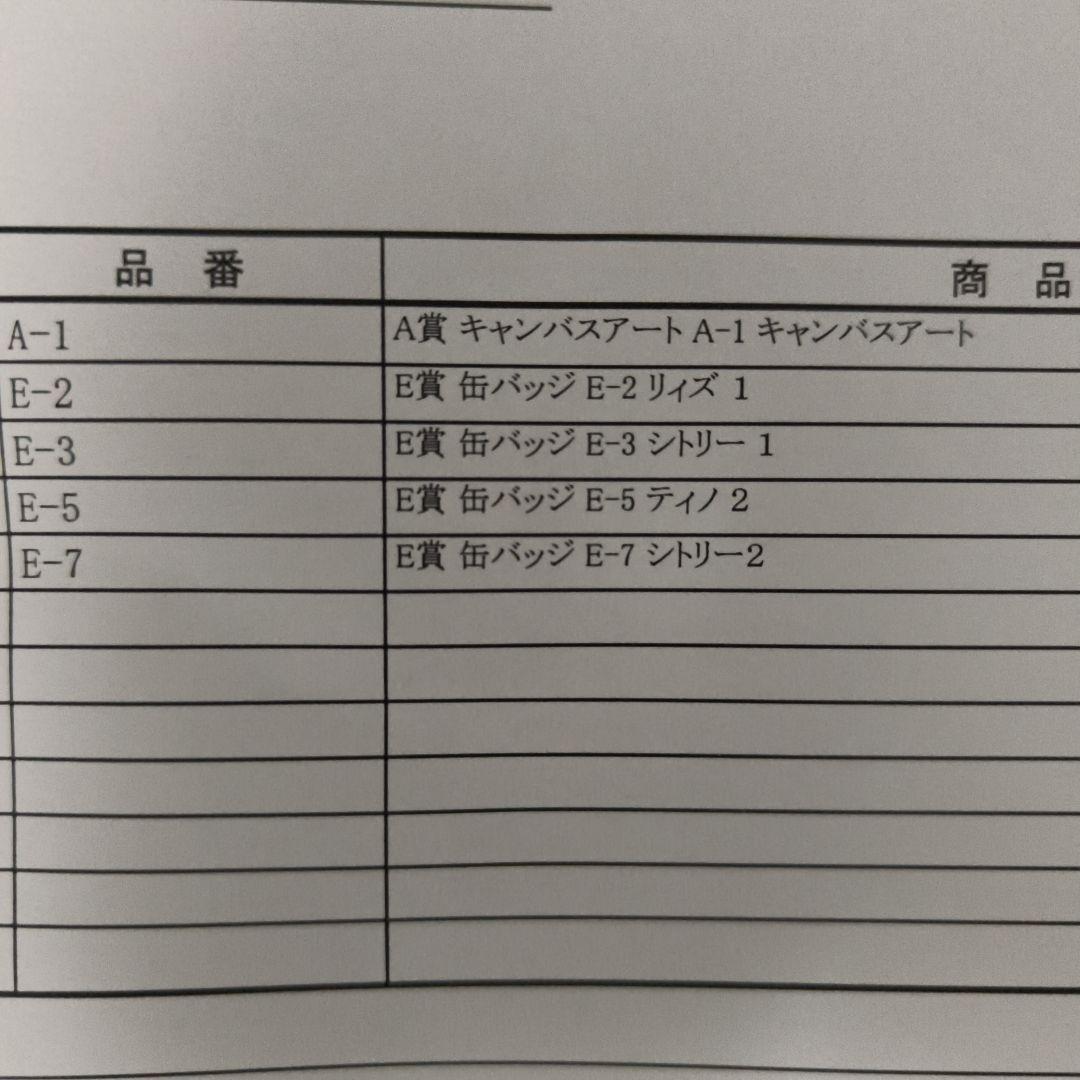 品 番 商 品
A-1 A賞 キャンバスアート A-1 キャンバスアート
E-2 E賞 缶バッジ E-2 リィズ 1
E-3 E賞 缶バッジ E-3 シトリー 1
E-5 E賞 缶バッジ E-5 ティノ 2
E-7 E賞 缶バッジ E-7 シトリー2